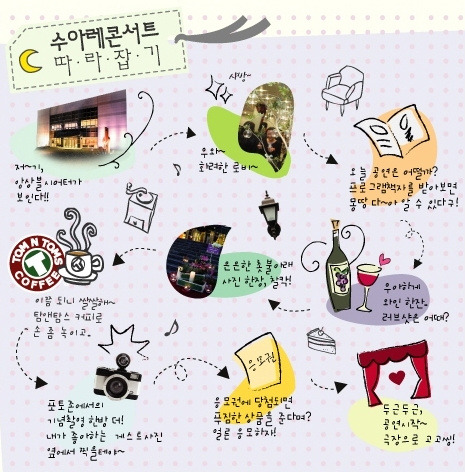 수아레콘서트
따·라·잡·기
샤방~
저~기,
앙상블 시어터가
보인다!!
우와~
화려한 로비~
오늘 공연은 어떨까?
프로그램책자를 받아보면
몽땅 다~아 알 수 있다구!
우아하게
와인 한잔..
러브샷은 어때?
은은한 촛불아래
사진 한장, 찰칵!
TOM N TOMS
COFFEE
이쯤 되니 쌀쌀해~
탐앤탐스 커피로
손 좀 녹이고..
포토존에서의
기념촬영 한방 더!
내가 좋아하는 게스트사진
옆에서 찍을테야~
응모권
응모권에 당첨되면
푸짐한 상품을 준다며?
얼른 응모하자!
두근두근,
공연시작~
극장으로 고고씽!